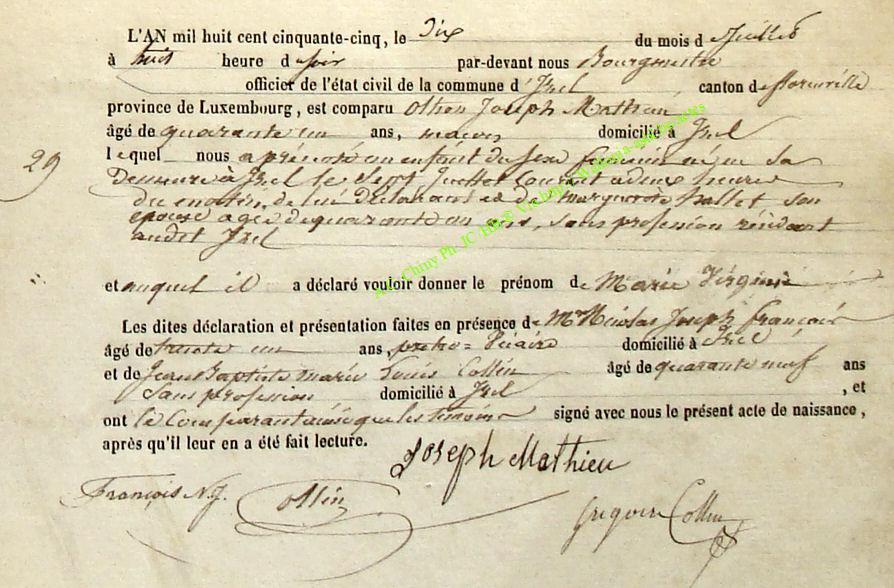 L'AN mil huit cent cinquante-cinq, le Dix du mois d Juillet
à huit heure d soir par-devant nous Bourgmestre
officier de l'état civil de la commune d'Izel canton de florenville
province de Luxembourg, est comparu Othon Joseph Mathieu
âgé de quarante un ans, domicilié à Izel
lequel nous a présenté un enfant du sexe feminin né en sa
Demeure à Izel le Sept Juillet courant a deux heures
du matin, de lui déclarant et de Marguerite hallet son
épouse agée de quarante un ans, sans profession résidant
audit Izel
29
et auquel il a déclaré vouloir donner le prénom de Marie Virginie
Les dites déclaration et présentation faites en présence de Mr Nicolas Joseph François
âgé de trente un ans, domicilié à Izel
et de Jean Baptiste marie Louis Collin âgé de quarante neuf ans
Sans profession domicilié à Izel , et
ont le Comparant ainsi que les temoins signé avec nous le présent acte de naissance,
après qu'il leur en a été fait lecture.
Joseph Mathieu
François N.J. Collin
Gregoire Collin